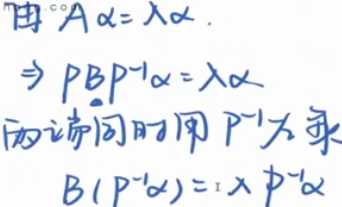 由 Aα = λα.
⇒ PBP⁻¹α = λα
两端同时用 P⁻¹左乘
B(P⁻¹α) = λ P⁻¹α